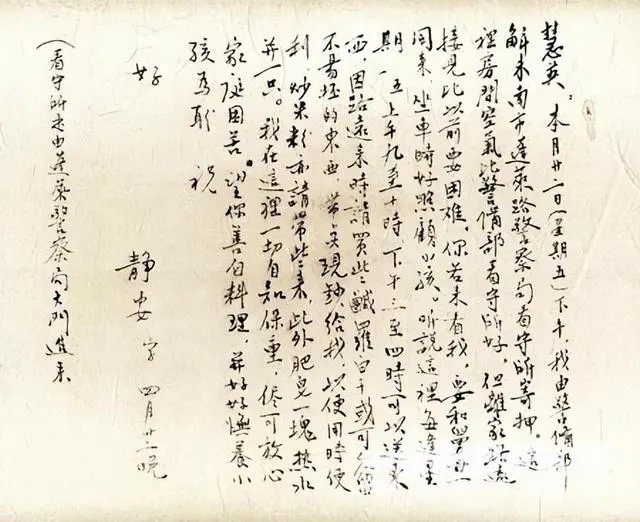 慧英：本月廿二日（星期五）下午，我由警備部
解来南市蓬萊路警察局看守所寄押。這
裡房間空氣比警備部看守所好，但離家路遠
接見比以前要困难。你若来看我，要和曼
同来坐車時好照顧小孩。听說這裡每逢星
期一、五上午九至十時 下午三至四時可以送東
西，因路遠来時請買些鹹羅白干或可久留
不易坯的東西，帶点現鈔給我，以便用時便
利，炒米粉亦請帶些来，此外肥皂一塊热水
并一只。我在這裡一切自知保重，儘可放心
家庭困苦。望你善自料理，并好好撫養小
孩為盼 祝
好
静安字 四月廿二晚
（看守所也由蓬萊警察局大門進来）